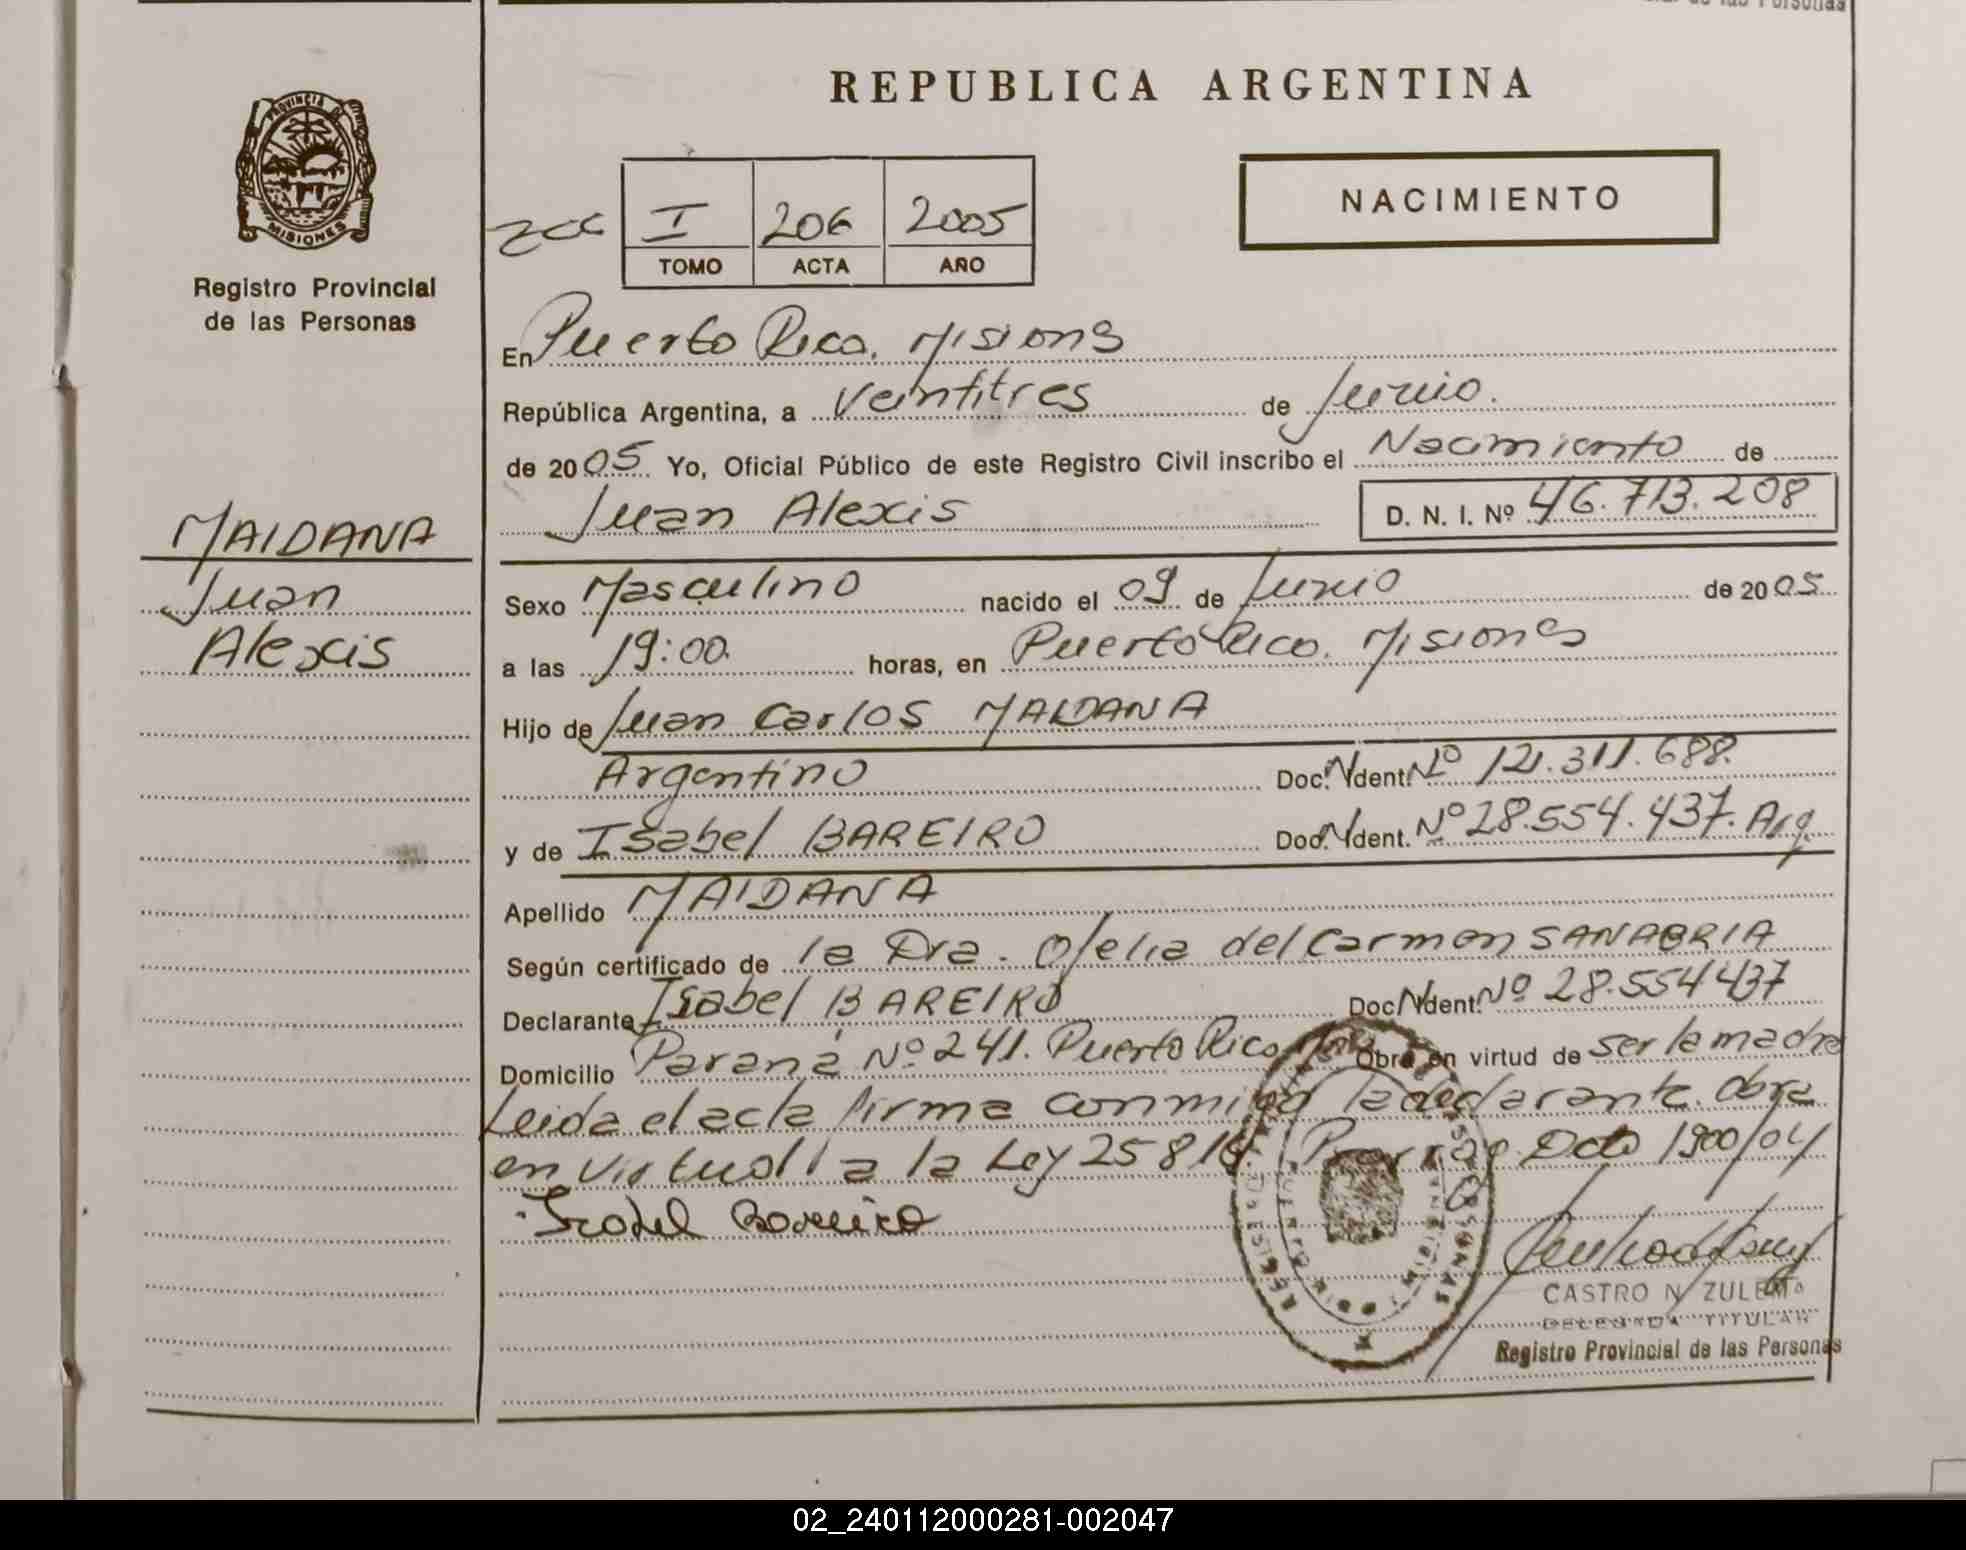 REPUBLICA ARGENTINA
PROVINCIA DE
MISIONES
Registro Provincial
de las Personas
NACIMIENTO
I 206 2005
TOMO ACTA AÑO
En Puerto Rico. Misiones
República Argentina, a Veintitres de Junio.
de 2005 Yo, Oficial Público de este Registro Civil inscribo el Nacimiento de
Juan Alexis D. N. I. Nº 46.713.208
MAIDANA
Juan
Alexis
Sexo Masculino nacido el 09 de Junio de 2005
a las 19:00 horas, en Puerto Rico. Misiones
Hijo de Juan Carlos MAIDANA
Argentino Doc. Ident. Nº 12.311.688.
y de Isabel BAREIRO Doc. Ident. Nº 28.554.437. Arg.
Apellido MAIDANA
Según certificado de la Dra. Ofelia del Carmen SANABRIA
Declarante Isabel BAREIRO Doc. Ident. Nº 28.554437
Domicilio Paraná Nº 241. Puerto Rico Obra en virtud de ser la madre
Leida el acta firma conmigo la declarante. obra
en virtud a la Ley 25819. Prorrog. Dcto 1900/04
Isabel Bareiro
CASTRO N. ZULEMA
DELEGADA TITULAR
Registro Provincial de las Personas
02_240112000281-002047